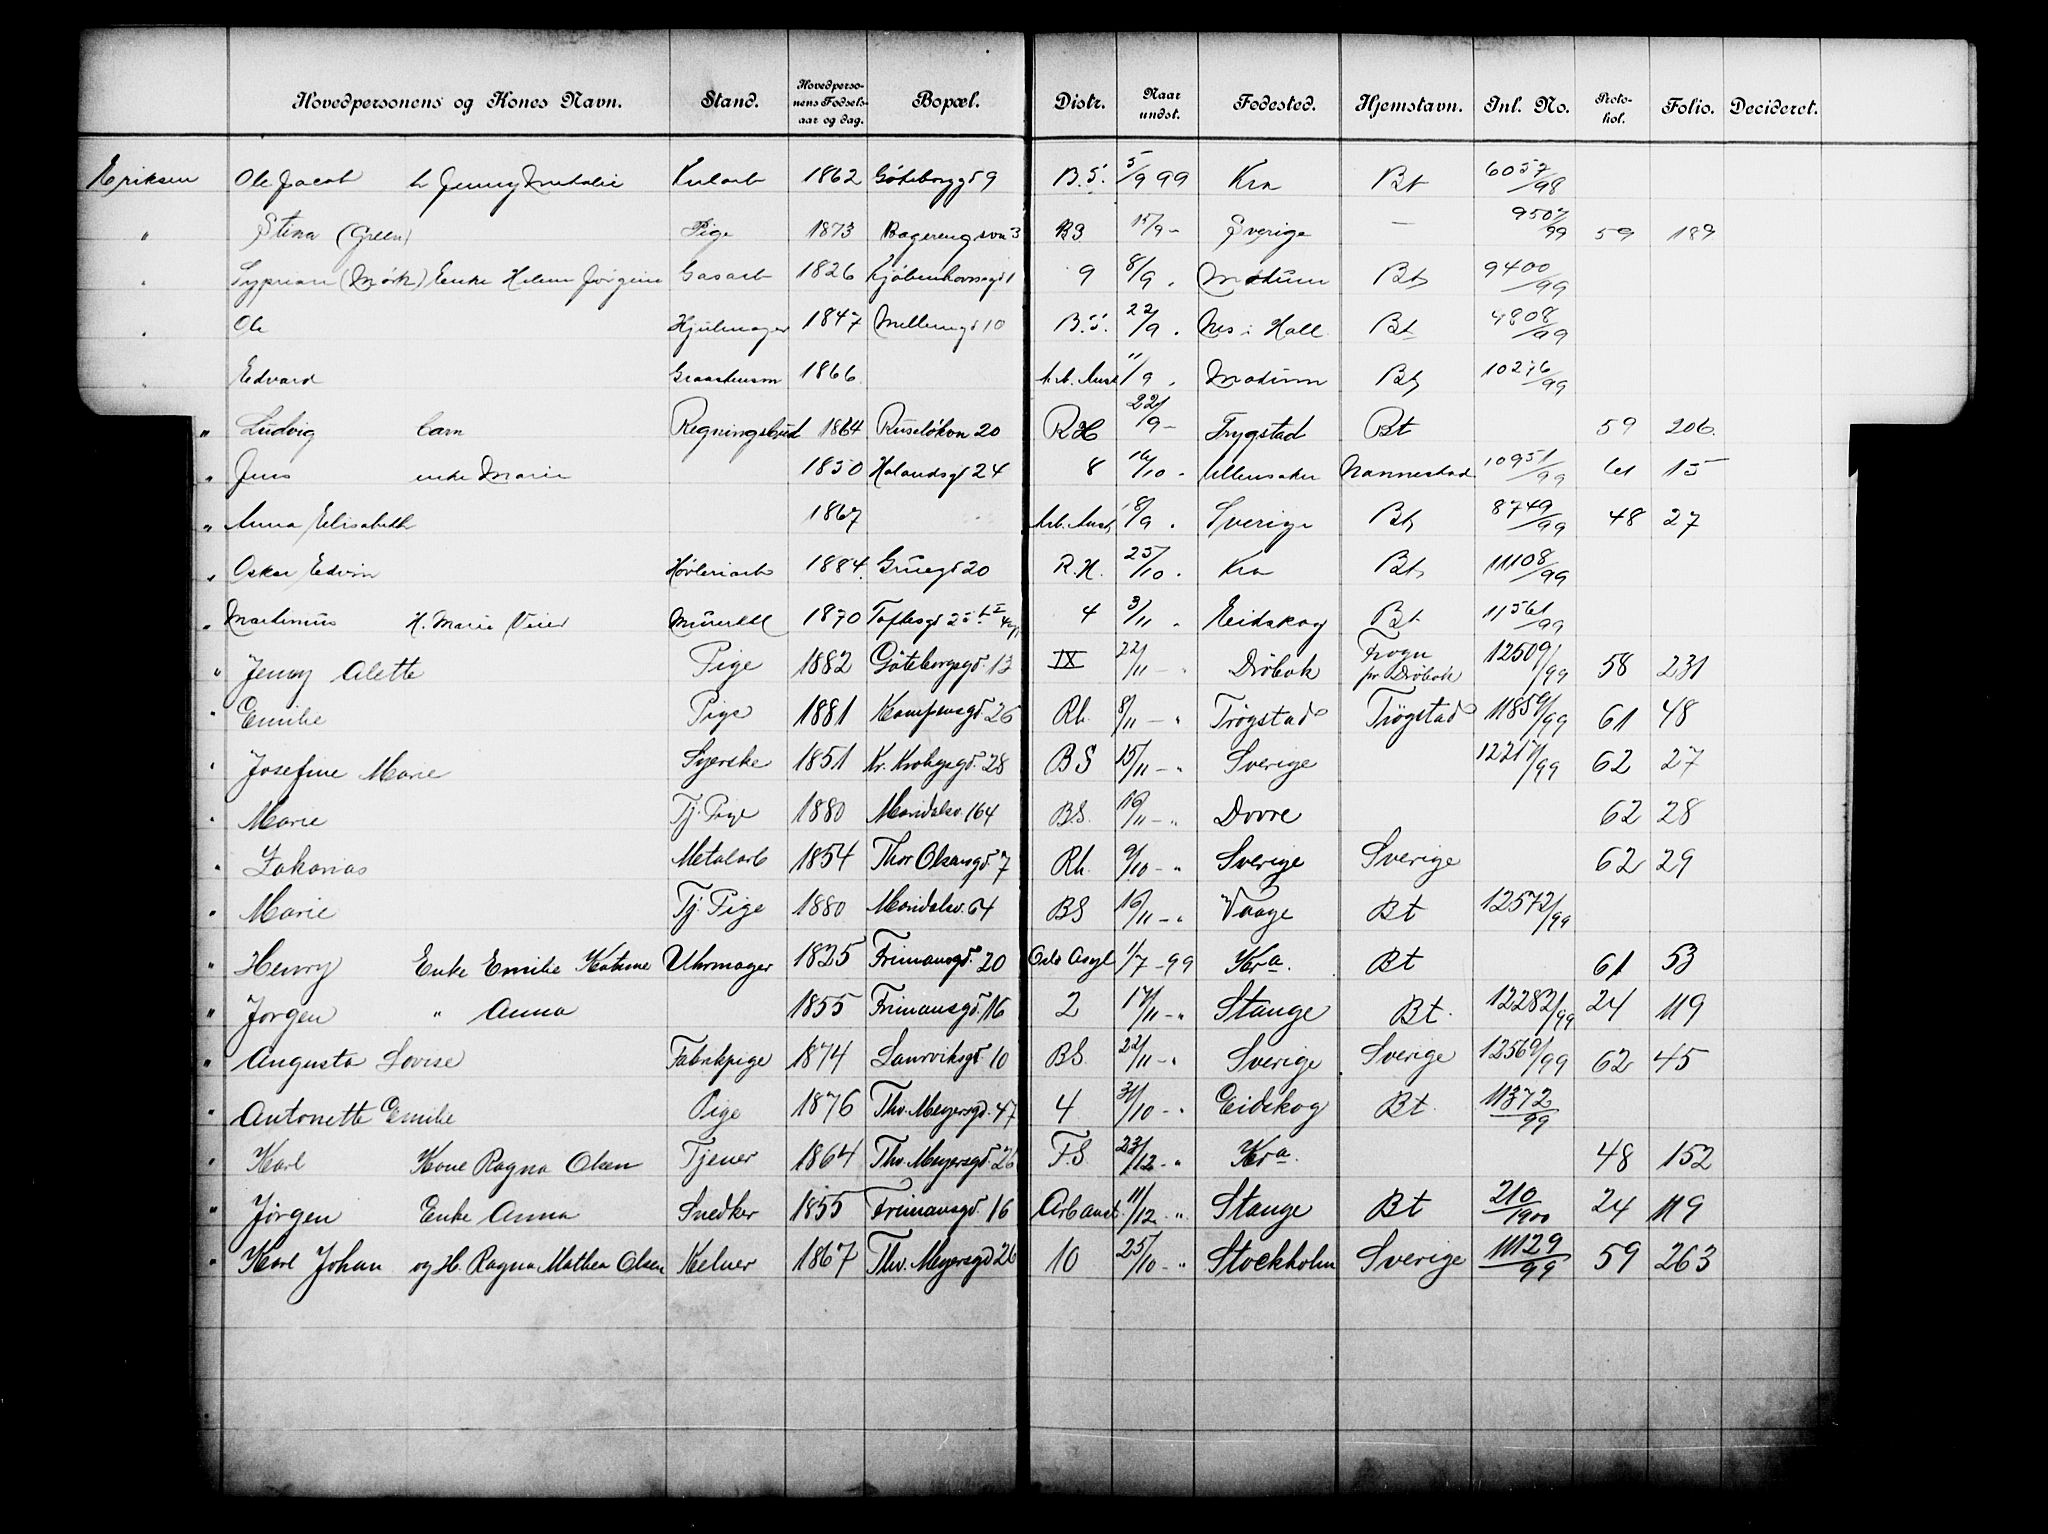 Hovedpersonens og Kones Navn. Stand. Hovedpersonens Fødselsaar og dag. Bopæl. Distr. Naar undst. Fødested. Hjemstavn. Inl. No. Protokol. Folio. Decideret.
Eriksen Ole Jacob h Jenny Mathilie Kularb 1862 Göteborggt 9 B.S. 5/9 99 Kra Bt 6057/98
" Stina (Green) Pige 1873 Bagerengsvn 3 BS 15/9 - Sverige — 9507/99 59 189
" Syprian (Mörk) Enke Helene Jörgine Gasarb 1826 Kjöbenhavnsgt 1 9 8/9 " Modum Bt 9400/99
" Ole Hjulmager 1847 Mellemgt 10 B.S. 22/9 " Nes i Hall. Bt 4808/99
" Edvard Graastensm 1866 A.A. Anst 11/9 " Modum Bt 10276/99
" Ludvig Carn Regningsbud 1864 Ruseløkvn 20 RH 22/9 - Trygstad Bt 59 206.
" Jens enke Marie 1850 Holandsgt 24 8 16/10 - Ullensaker Nannestad 10951/99 61 15
" Anna Elisabeth 1867 Arb. Anst 18/9 " Sverige Bt 8749/99 48 27
" Oskar Edvin Høvleriarb 1884 Grüegt 20 R.H. 25/10 " Kra Bt 11108/99
" Martinius H. Marie Veier Murerkl 1870 Toftesgt 25 4 3/11 " Eidskog Bt 11561/99
" Jenny Alette Pige 1882 Göteborgsgd. 13 IX 22/11 - " Drøbak Frogn pr Drøbak 12509/99 58 231
" Emilie Pige 1881 Kampensgd. 26 Rh. 8/11 - " Trøgstad Trøgstad 11859/99 61 48
" Josefine Marie Syerske 1851 Kr. Krohgsgd. 28 BS 15/11 - " Sverige 12217/99 62 27
" Marie Tj. Pige 1880 Maridalsv. 164 B.S. 16/11 - " Dovre 62 28
" Zakarias Metalarb 1854 Thor Olsensgd. 7 Rh. 9/10 - " Sverige Sverige 62 29
" Marie Tj. Pige 1880 Maridalsv. 64 BS 16/11 - " Vaage Bt 12572/99
" Henry Enke Emilie Katrine Uhrmager 1825 Frimansgd. 20 Oslo Asyl 1/7 - 99 Kra. Bt 61 53
" Jørgen " Anna 1855 Frimansgd. 16 2 17/11 - " Stange Bt. 12282/99 24 119
" Augusta Lovise Fabrikpige 1874 Laurviksgd. 10 BS. 22/11 - " Sverige Sverige 12569/99 62 45
" Antonette Emilie Pige 1876 Thv. Meyersgd. 47 4 31/10 - " Eidskog Bt. 11372/99
" Karl Kone Ragna Olsen Tjener 1864 Thv. Meyersgd. 26 F.S. 23/12 - " Kra. 48 152
" Jørgen Enke Anna Snedker 1855 Frimansgd. 16 Arb anst. 11/12 - " Stange Bt 210/1900 24 119
" Karl Johan og H. Ragna Mathea Olsen Kelner 1867 Thv. Meyersgd 26 10 25/10 - " Stockholm Sverige 11129/99 59 263